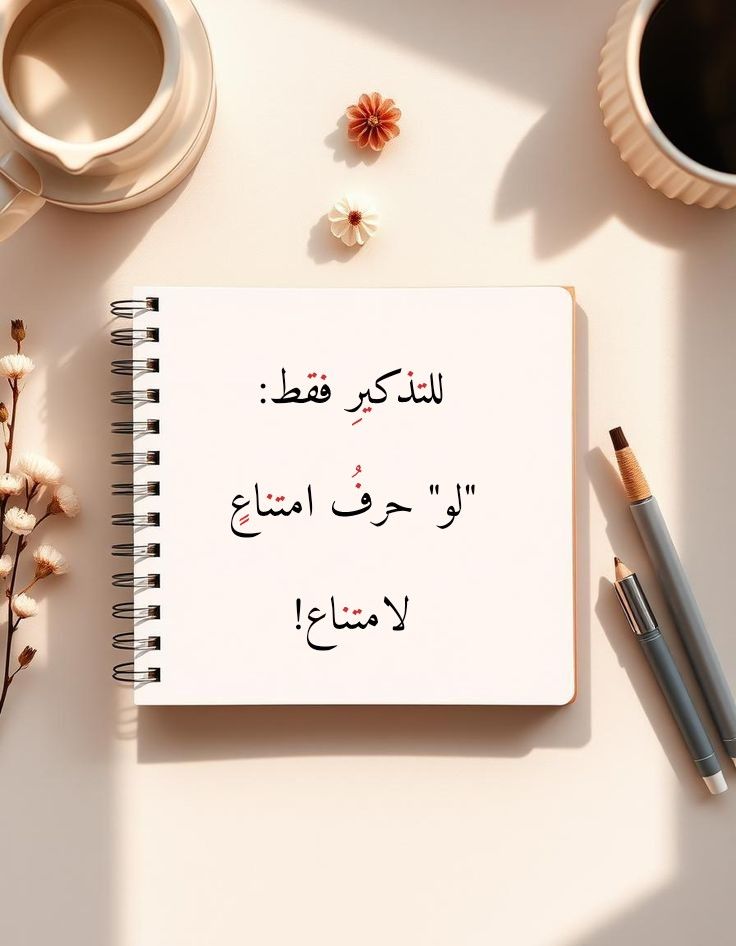 للتذكيرِ فقط:
"لو" حرفُ امتناعٍ
لامتناع!